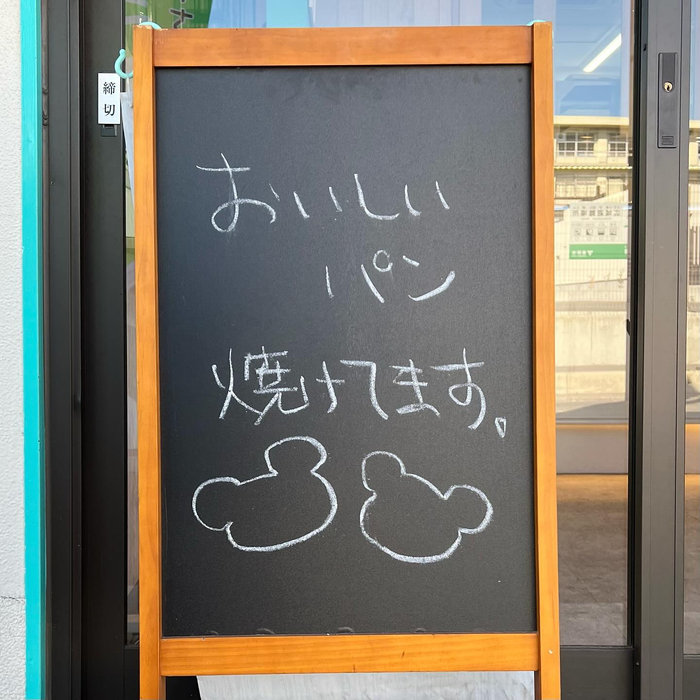 おいしい
パン
焼けてます。
締切